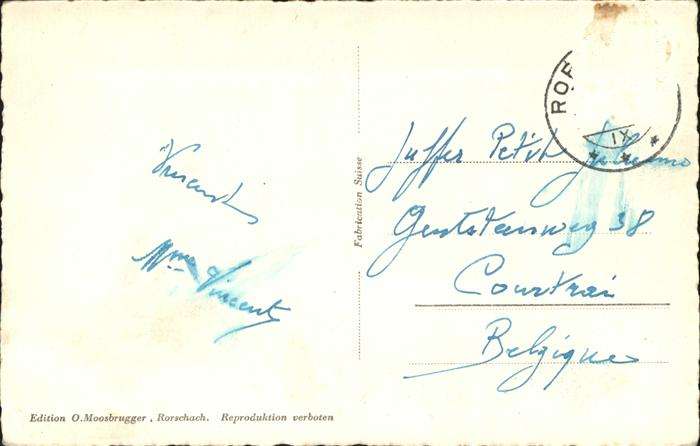 Vincent
Mme Vincent
Edition O. Moosbrugger, Rorschach. Reproduktion verboten
Fabrication Suisse
ROR
IX
Juffer Petit
38
Courtrai
Belgique